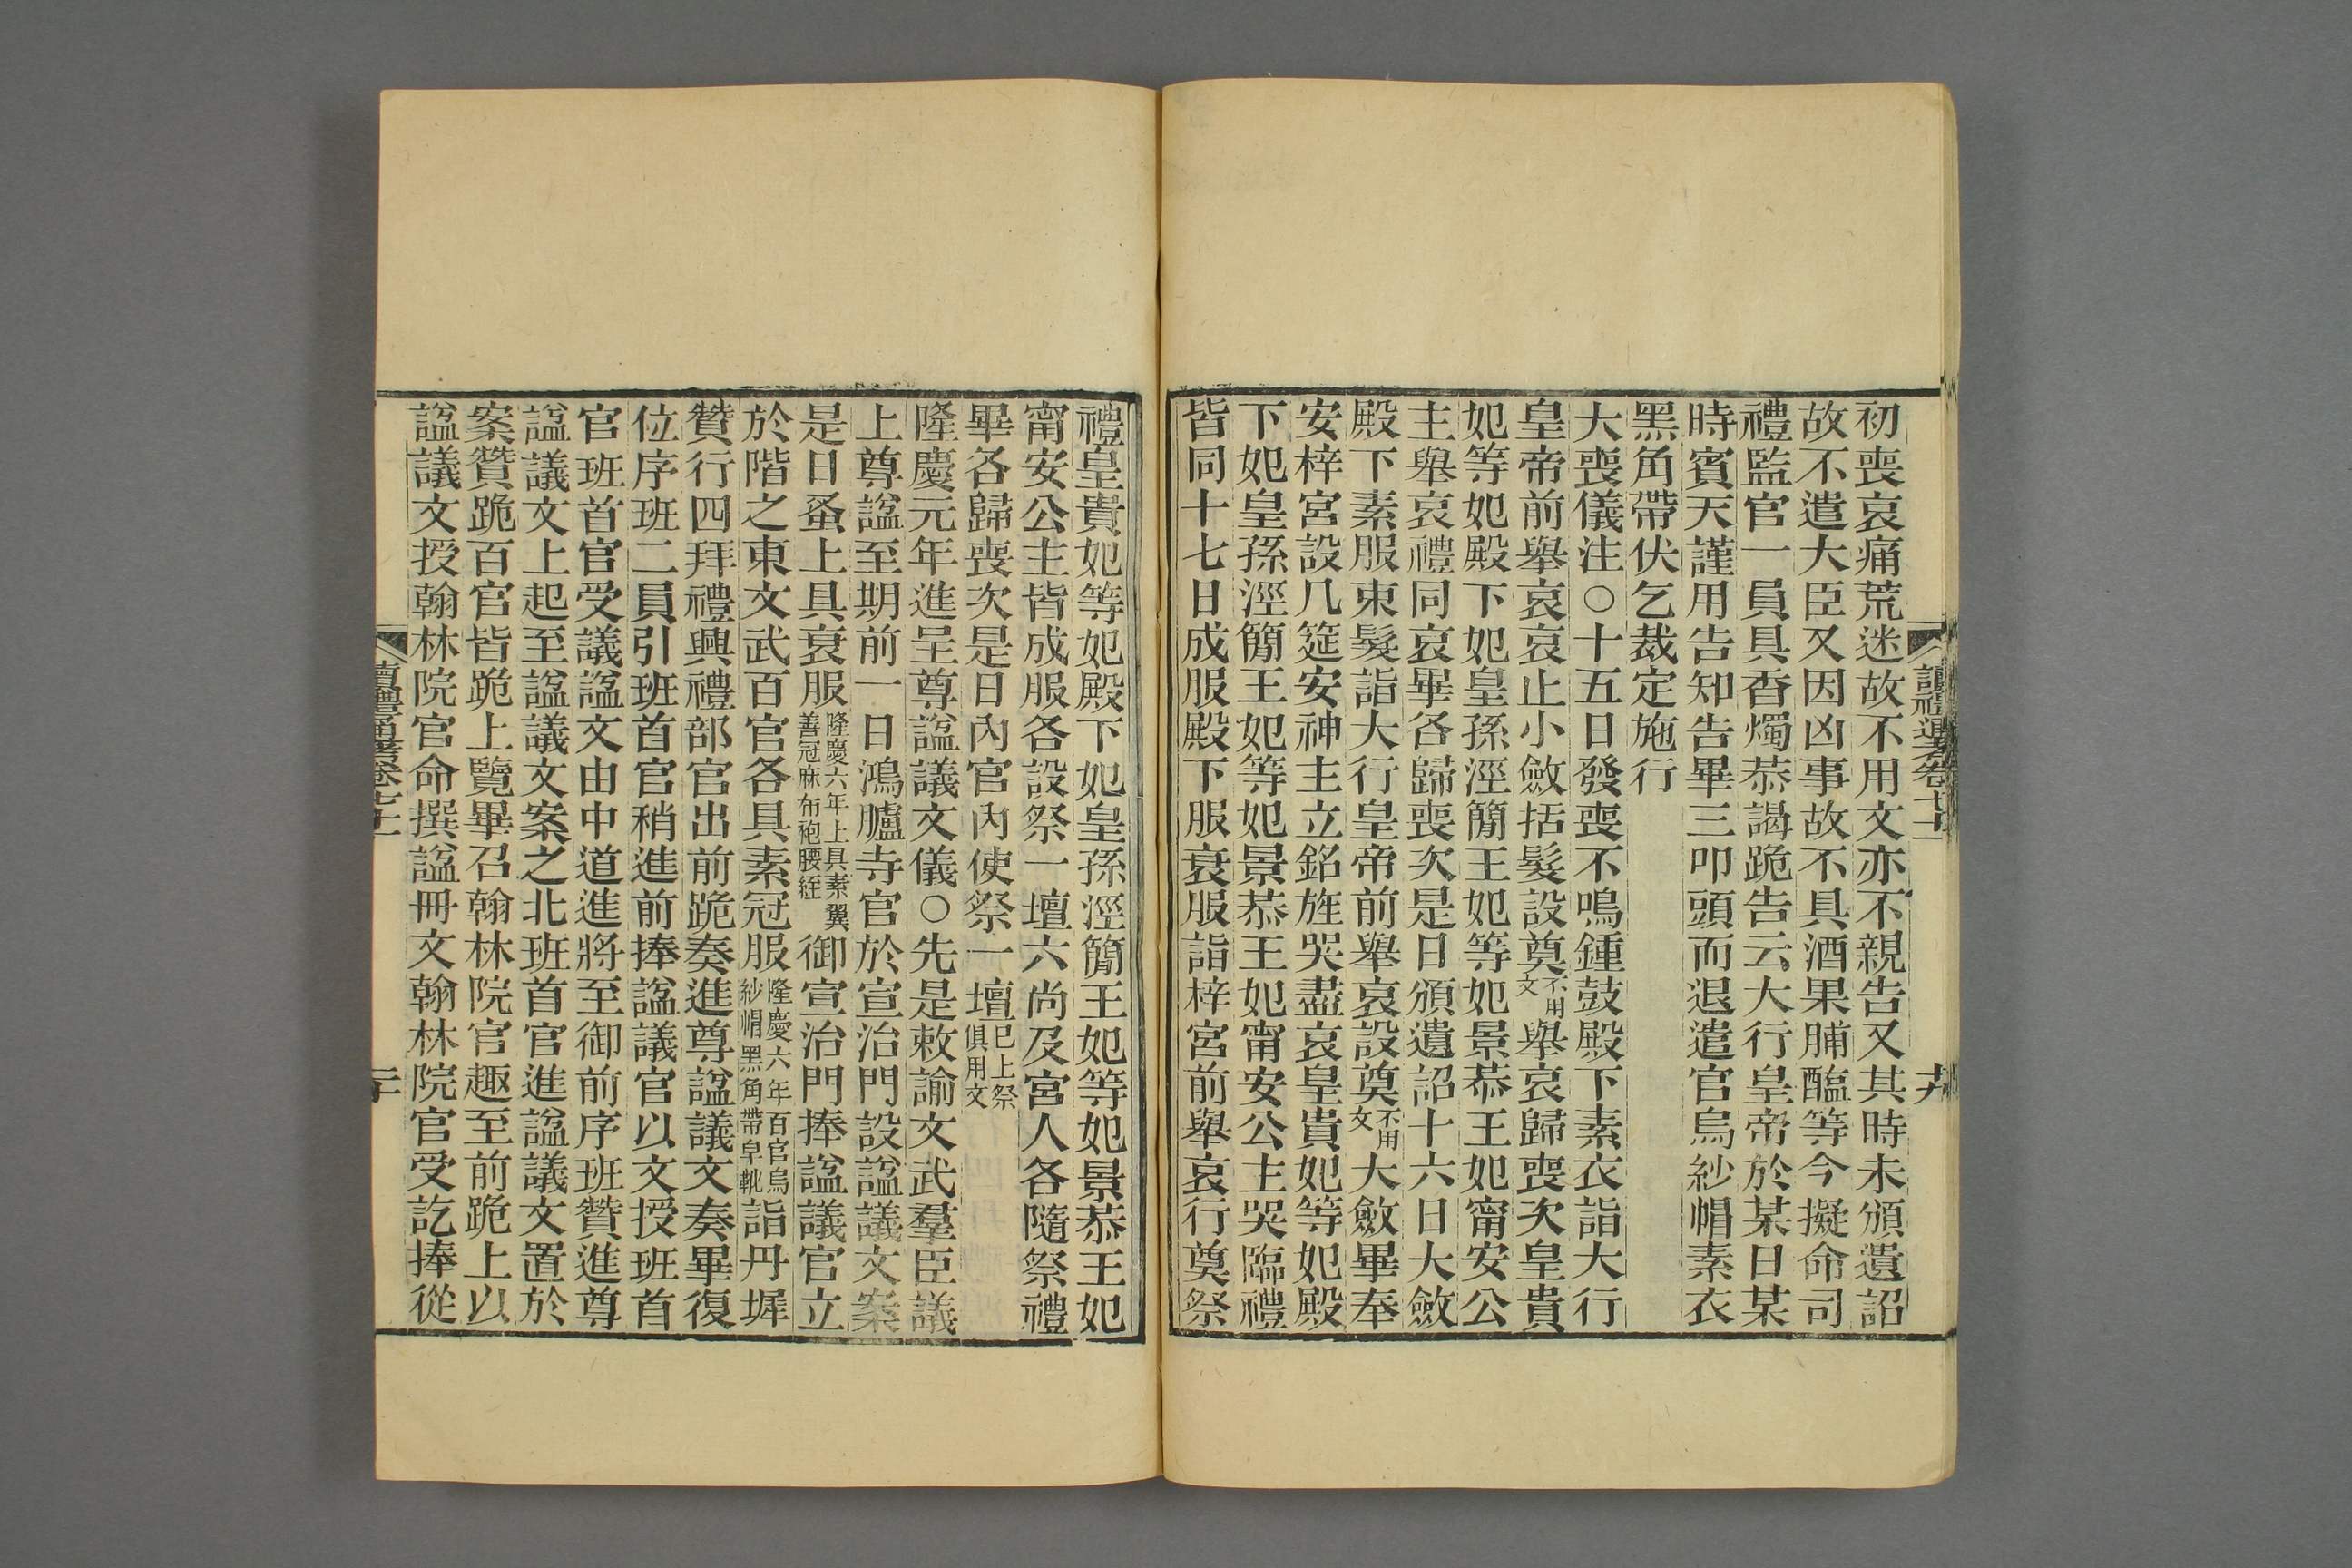 讀禮通考卷七十一
十九
初喪哀痛荒迷故不用文亦不親告又其時未頒遺詔
故不遣大臣又因凶事故不具酒果脯醢等今擬命司
禮監官一員具香燭恭謁跪告云大行皇帝於某日某
時賓天謹用告知告畢三叩頭而退遣官烏紗帽素衣
黑角帶伏乞裁定施行
大喪儀注○十五日發喪不鳴鍾鼓殿下素衣詣大行
皇帝前舉哀哀止小斂括髮設奠不用文舉哀歸喪次皇貴
妃等妃殿下妃皇孫涇簡王妃等妃景恭王妃甯安公
主舉哀禮同哀畢各歸喪次是日頒遺詔十六日大斂
殿下素服束髮詣大行皇帝前舉哀設奠不用文大斂畢奉
安梓宮設几筵安神主立銘旌哭盡哀皇貴妃等妃殿
下妃皇孫涇簡王妃等妃景恭王妃甯安公主哭臨禮
皆同十七日成服殿下服衰服詣梓宮前舉哀行奠祭
禮皇貴妃等妃殿下妃皇孫涇簡王妃等妃景恭王妃
甯安公主皆成服各設祭一壇六尚及宮人各隨祭禮
畢各歸喪次是日內官內使祭一壇巳上祭俱用文
隆慶元年進呈尊諡議文儀○先是敕諭文武羣臣議
上尊諡至期前一日鴻臚寺官於宣治門設諡議文案
是日蚤上具衰服隆慶六年上具素翼善冠麻布袍腰絰御宣治門捧諡議官立
於階之東文武百官各具素冠服隆慶六年百官烏紗帽黑角帶皁靴詣丹墀
贊行四拜禮興禮部官出前跪奏進尊諡議文奏畢復
位序班二員引班首官稍進前捧諡議官以文授班首
官班首官受議諡文由中道進將至御前序班贊進尊
諡議文上起至諡議文案之北班首官進諡議文置於
案贊跪百官皆跪上覽畢召翰林院官趣至前跪上以
諡議文授翰林院官命撰諡冊文翰林院官受訖捧從
讀禮通考卷七十一
二十